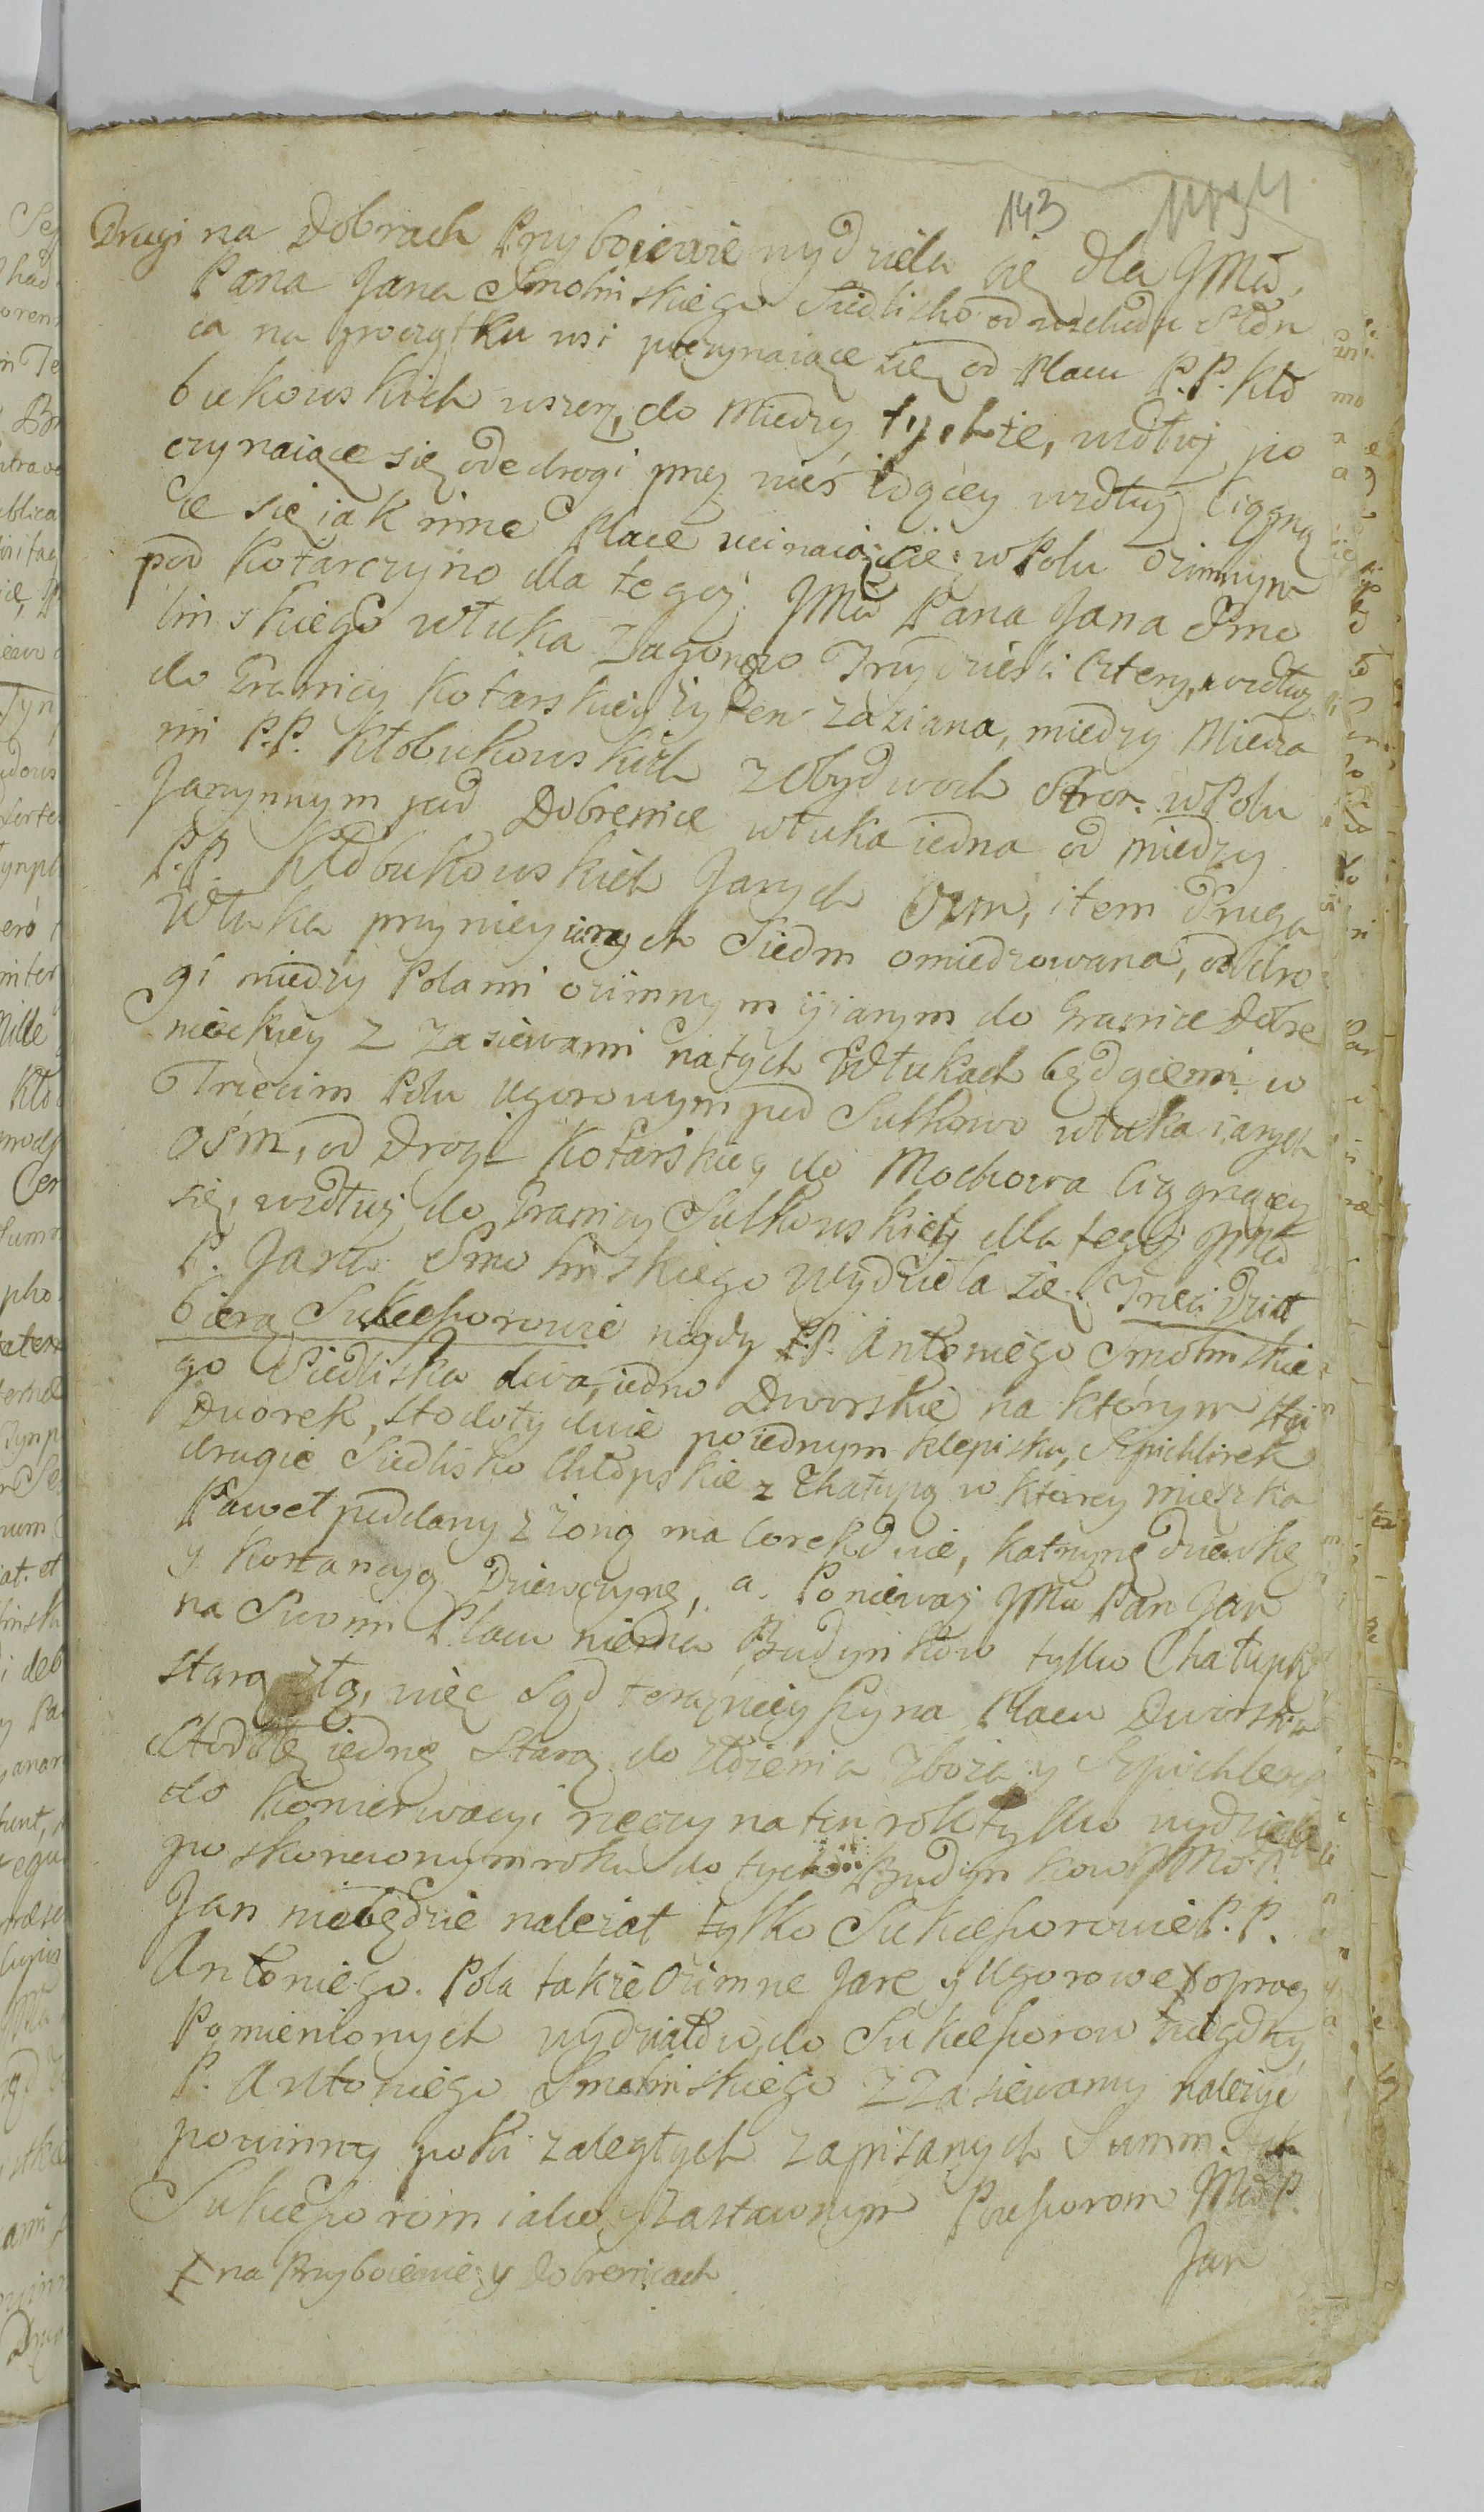 143
Drugi na Dobrach Przyboiewie wydziela się dla JMci
Pana Jana Smolinskiego Siedlisko od wschodu Słon
ca na początku wsi poczynaiące się od Placu P.P. Kło
bukowskich wszerz, do Miedzy tychże, wzdłuż po
czynaiące się ode drogi przez wieś idącey wzdłuż ciągną
ce się iak inne Place ucinaiące: w Polu oziminym
pod Kotarczyno dla tegoż JMci Pana Jana Smo
linskiego włuka Zagonow Trzydzieści cztery, wzdłuż
do Granicy Kotarskiey żytem zaziana, między Miedza
mi P.P. Kłobukowskich z obydwoch Stron. w Polu
Jarzynnym pod Dobrenice włuka iedna od miedzy
P.P. Kłobukowskich Jarych Ozm, item Druga
Włuka przy niey iarych Siedm omiedzowana, od dro
gi między Polami ozimnym y iarym do Granice Dobre
nieckiey z zasiewami na tych Włukach będącemi w
Trzecim Polu Ugorowym pod Sulkowo włuka iarych
ośm, od Drogi Kotarskiey do Mochowa ciągnącey
się, wzdłuż do Granicy Sulkowskiey dla tegoż JMci
P. Jana Smolinskiego wydziela się. Trzeci Dział
biorą Sukcessorowie niegdy P.P. Antoniego Smolinskie
go Siedliska dwa, iedno Dworskie na którym stoi
Dworek, stodoły dwie po iednym klepisku, Szpichlirek
drugie Siedlisko Chłopskie z Chałupą w ktorey mieszka
Paweł poddany z żoną ma corek dwie, Katrzynę dziewkę
y Kostancyą Dziewczynę, a. Poniewaz JMci Pan Jan
na Swoim Placu niema Budynkow tylko Chałupkę
starą złą, więc Sąd teraznieyszy na Placu Dworskim
Stodołę iednę starą do złożenia zboża y Szpichlerz
do konserwacyi rzeczy na ten rok tylko wydziela
po skonczonym roku do tych Budynkow JMć P.
Jan niebędzie należał tylko Sukcessorowie P.P.
Antoniego. Pola takze Ozimne Jare y Ugorowe ⨍ oprocz
Pomienionych wydziałow do Sukcessorow niegdy
P. Antoniego Smolinskiego z zasiewamy należyć
powinny poki zaległych zapisanych Summ.
Sukcessorom iako y Zastawnym Possessorom JMć P.
Jan
⨍ na Przyboiewie y Dobrenicach